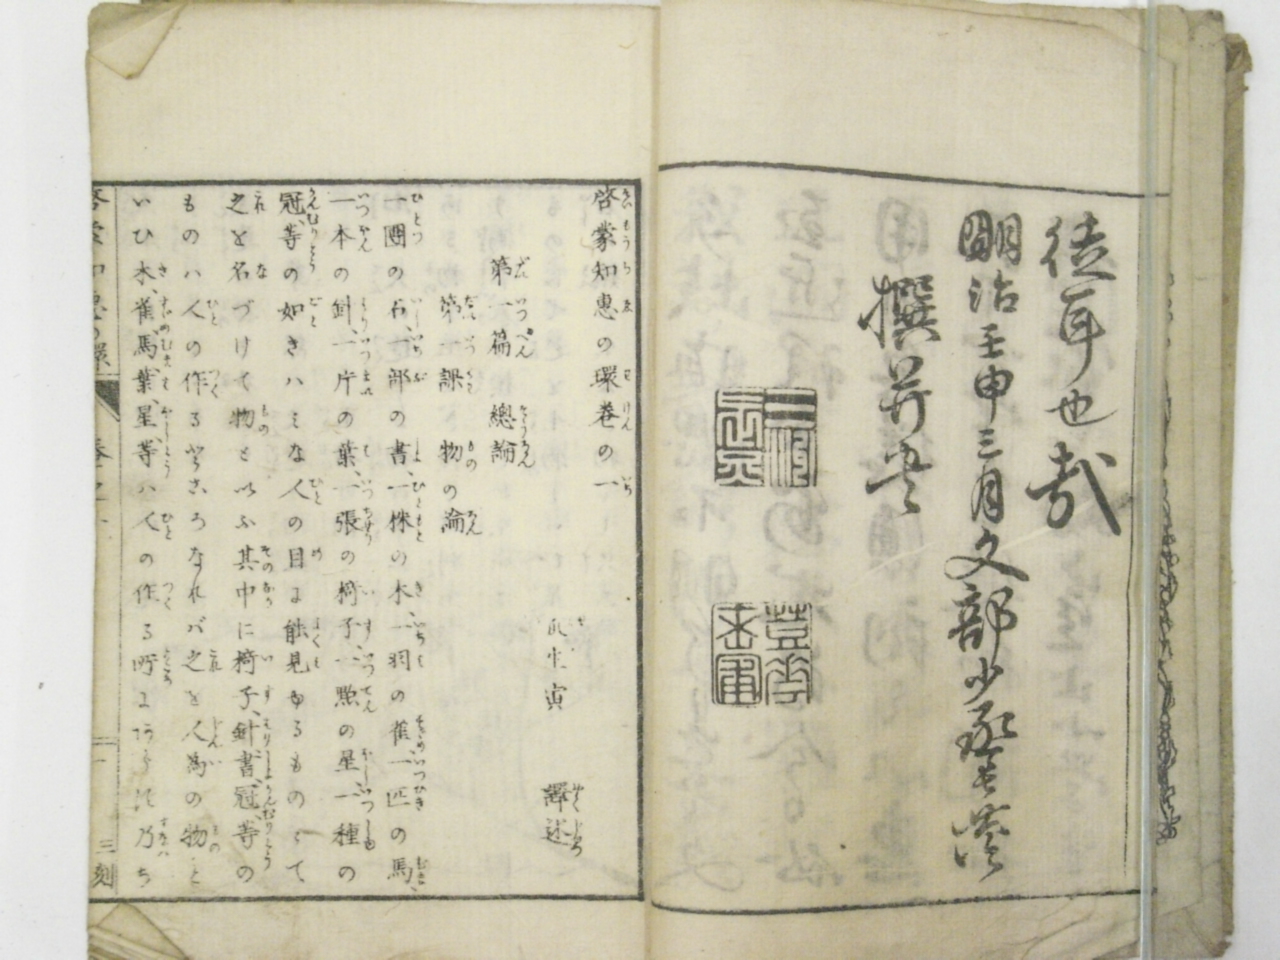 徒耳也哉
明治壬申三月文部少丞長炗
撰并書
啓蒙知恵の環巻の一
第一篇 總論
第一課 物の論
瓜生寅 譯述
一圏の石、一部の書、一株の木、一羽の雀、一匹の馬、
一本の針、一片の葉、一張の椅子、一點の星、一種の
冠、等の如きハミな人の目に能見ゆるものにて、
之を名づけて物と以ふ其中に椅子、針、書、冠、等の
ものハ人の作るところなれバ之を人為の物と
いひ木、雀、馬、葉、星、等ハ人の作る所にあらず乃ち
三刻